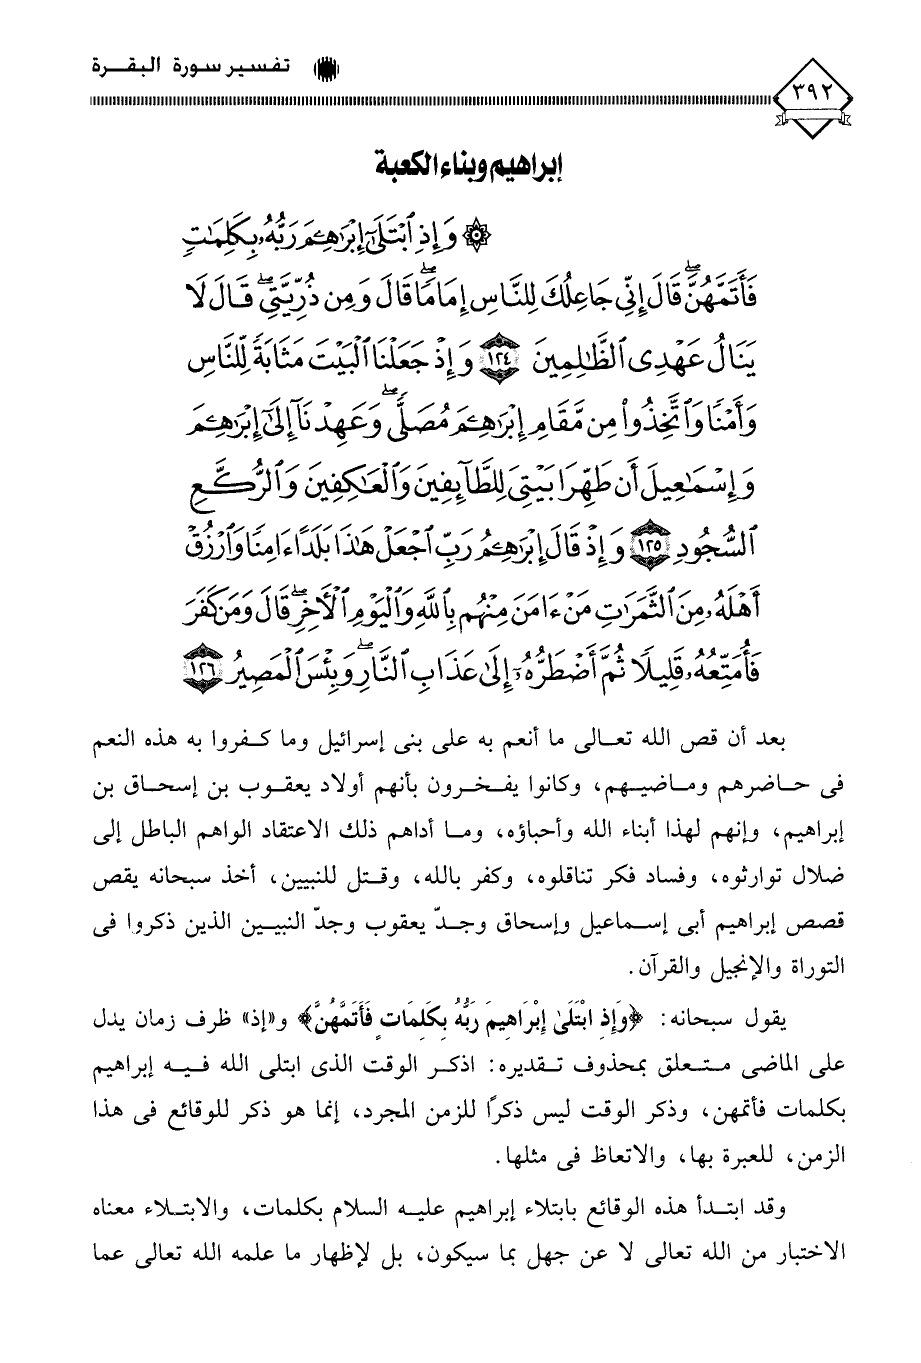 تفسير سورة البقرة
٣٩٢
إبراهيم وبناء الكعبة
۞ وَإِذِ ٱبْتَلَىٰٓ إِبْرَٰهِـۧمَ رَبُّهُۥ بِكَلِمَٰتٍ
فَأَتَمَّهُنَّ ۖ قَالَ إِنِّى جَاعِلُكَ لِلنَّاسِ إِمَامًا ۖ قَالَ وَمِن ذُرِّيَّتِى ۖ قَالَ لَا
يَنَالُ عَهْدِى ٱلظَّٰلِمِينَ ١٢٤ وَإِذْ جَعَلْنَا ٱلْبَيْتَ مَثَابَةً لِّلنَّاسِ
وَأَمْنًا وَٱتَّخِذُوا۟ مِن مَّقَامِ إِبْرَٰهِـۧمَ مُصَلًّى ۖ وَعَهِدْنَآ إِلَىٰٓ إِبْرَٰهِـۧمَ
وَإِسْمَٰعِيلَ أَن طَهِّرَا بَيْتِىَ لِلطَّآئِفِينَ وَٱلْعَٰكِفِينَ وَٱلرُّكَّعِ
ٱلسُّجُودِ ١٢٥ وَإِذْ قَالَ إِبْرَٰهِـۧمُ رَبِّ ٱجْعَلْ هَٰذَا بَلَدًا ءَامِنًا وَٱرْزُقْ
أَهْلَهُۥ مِنَ ٱلثَّمَرَٰتِ مَنْ ءَامَنَ مِنْهُم بِٱللَّهِ وَٱلْيَوْمِ ٱلْأَخِرِ ۖ قَالَ وَمَن كَفَرَ
فَأُمَتِّعُهُۥ قَلِيلًا ثُمَّ أَضْطَرُّهُۥٓ إِلَىٰ عَذَابِ ٱلنَّارِ ۖ وَبِئْسَ ٱلْمَصِيرُ ١٢٦
بعد أن قص الله تعالى ما أنعم به على بنى إسرائيل وما كفروا به هذه النعم
فى حاضرهم وماضيهم، وكانوا يفخرون بأنهم أولاد يعقوب بن إسحاق بن
إبراهيم، وإنهم لهذا أبناء الله وأحباؤه، وما أداهم ذلك الاعتقاد الواهم الباطل إلى
ضلال توارثوه، وفساد فكر تناقلوه، وكفر بالله، وقتل للنبيين، أخذ سبحانه يقص
قصص إبراهيم أبى إسماعيل وإسحاق وجدّ يعقوب وجدّ النبيين الذين ذكروا فى
التوراة والإنجيل والقرآن.
يقول سبحانه: ﴿وَإِذِ ابْتَلَىٰ إِبْرَاهِيمَ رَبُّهُ بِكَلِمَاتٍ فَأَتَمَّهُنَّ﴾ و«إذ» ظرف زمان يدل
على الماضى متعلق بمحذوف تقديره: اذكر الوقت الذى ابتلى الله فيه إبراهيم
بكلمات فأتمهن، وذكر الوقت ليس ذكرًا للزمن المجرد، إنما هو ذكر للوقائع فى هذا
الزمن، للعبرة بها، والاتعاظ فى مثلها.
وقد ابتدأ هذه الوقائع بابتلاء إبراهيم عليه السلام بكلمات، والابتلاء معناه
الاختبار من الله تعالى لا عن جهل بما سيكون، بل لإظهار ما علمه الله تعالى عما